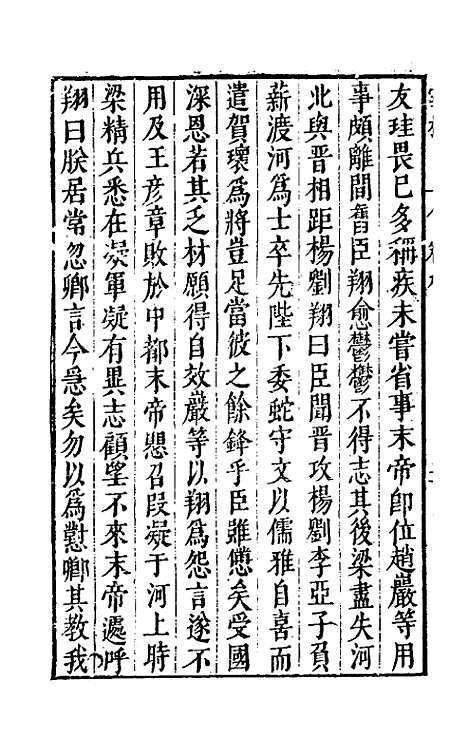 友珪畏已多稱疾未嘗省事末帝卽位趙巖等用
事頗離間舊臣翔愈鬱鬱不得志其後梁盡失河
北與晉相距楊劉翔曰臣聞晉攻楊劉李亞子負
薪渡河爲士卒先陛下委蛇守文以儒雅自喜而
遣賀瓌爲將豈足當彼之餘鋒乎臣雖憊矣受國
深恩若其乏材願得自效巖等以翔爲怨言遂不
用及王彥章敗於中都末帝懼召段凝于河上時
梁精兵悉在凝軍凝有異志顧望不來末帝遽呼
翔曰朕居常忽卿言今急矣勿以爲懟卿其教我